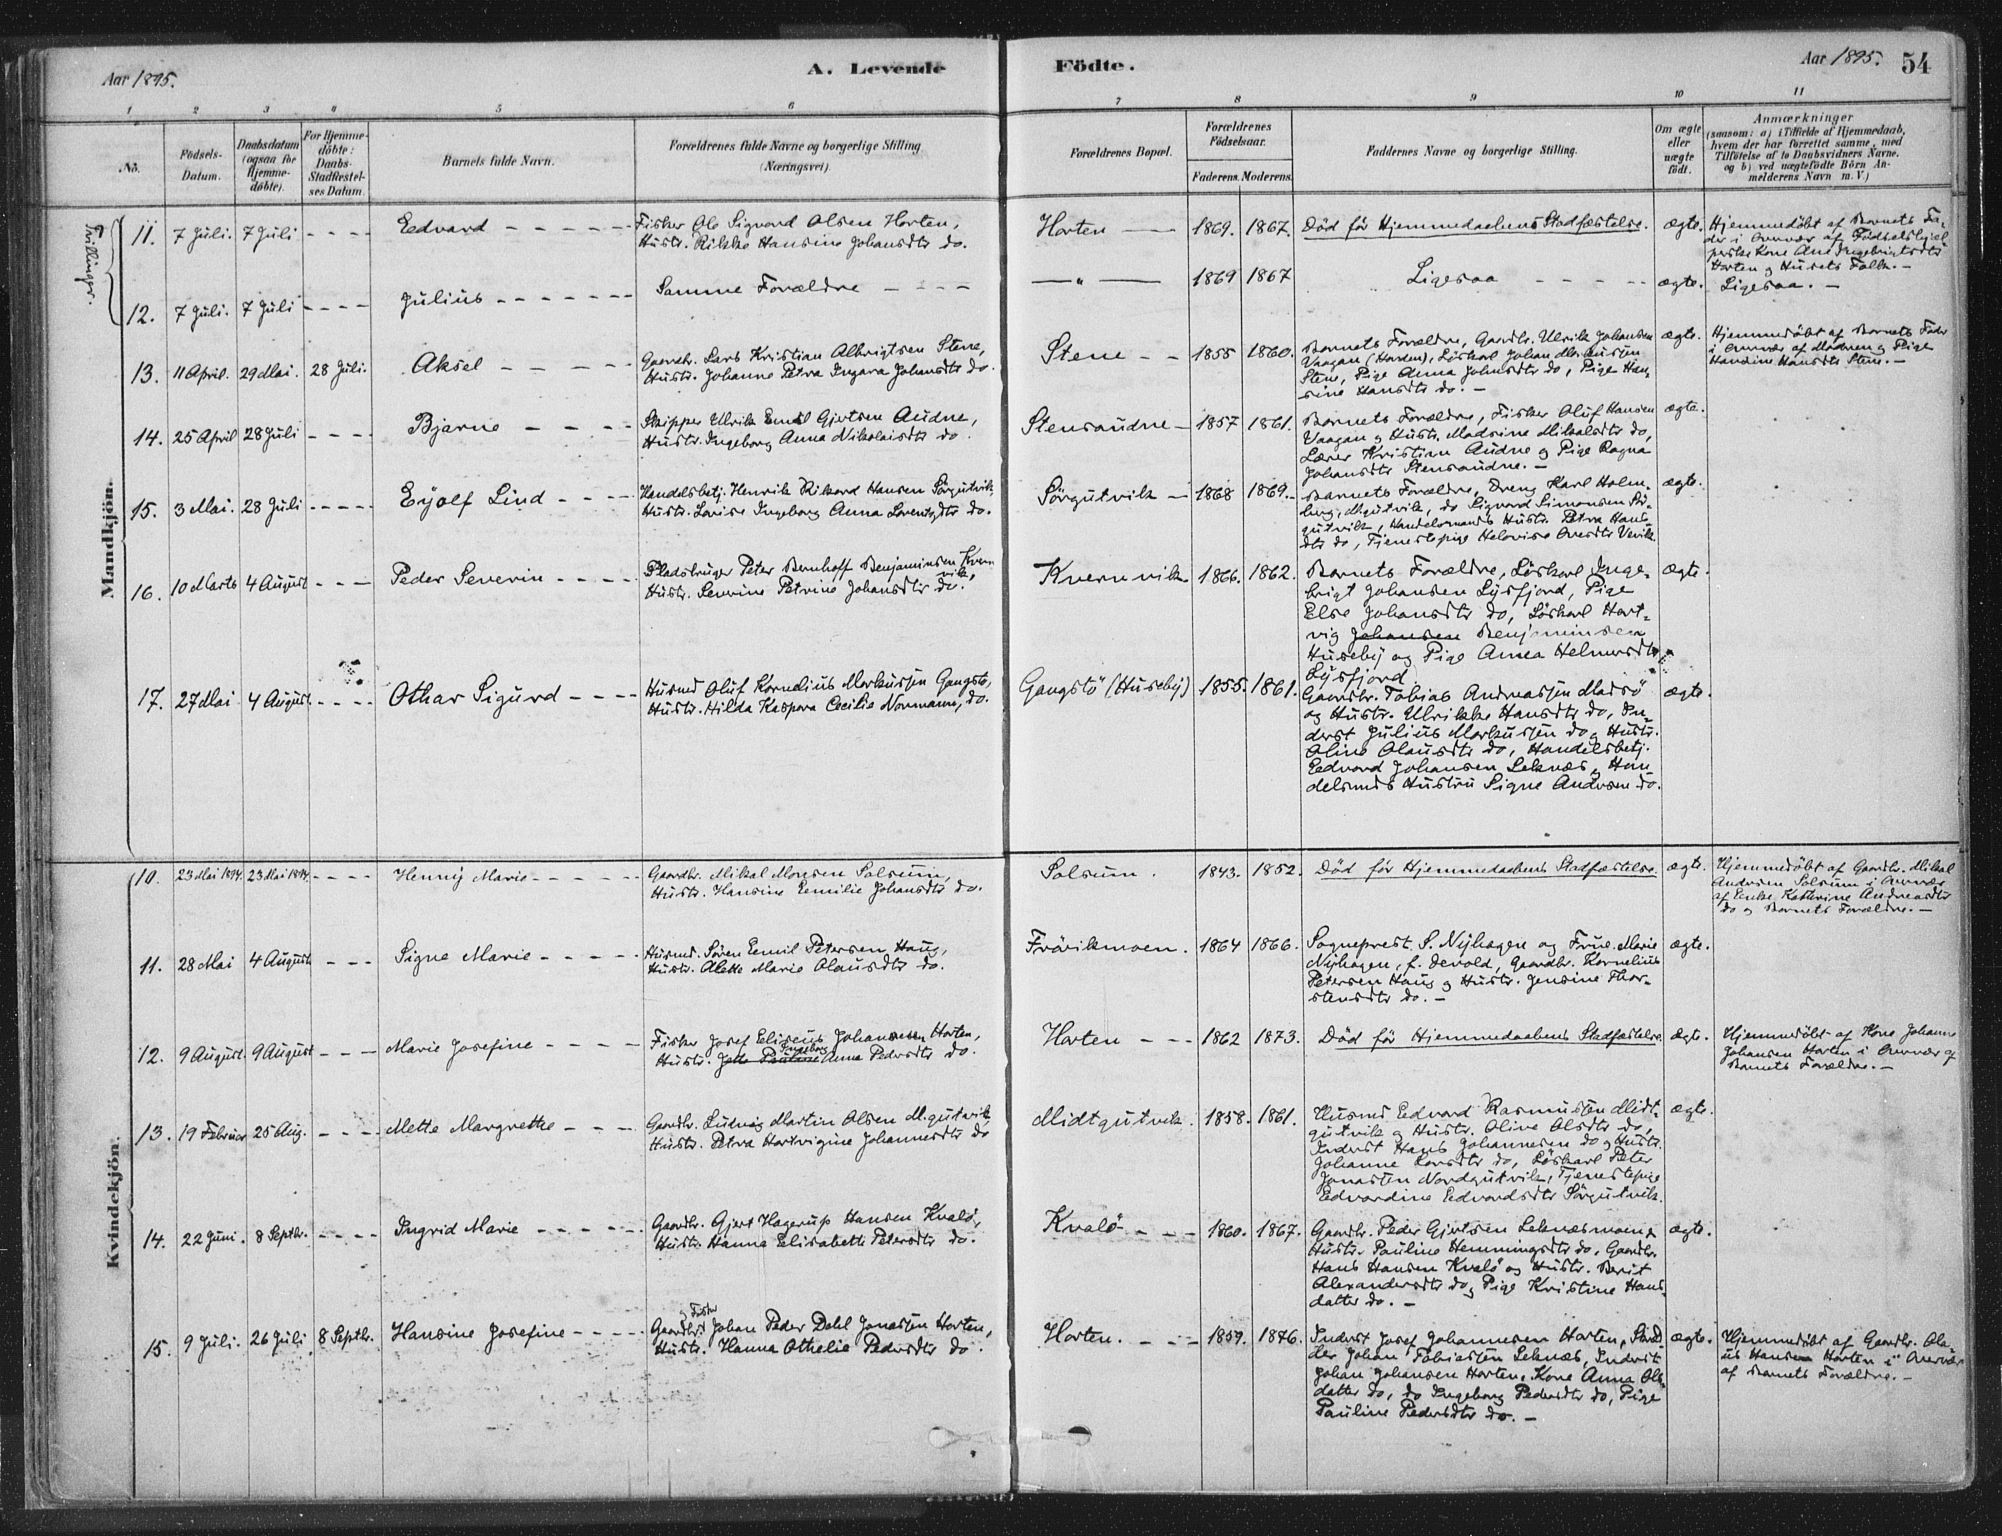 Aar 1895.
A. Levende
Födte.
Aar 1895.
54
1 2 3 4 5 6 7 8 9 10 11
No.
Födsels-Datum.
Daabsdatum (ogsaa for Hjemme-döbte).
For Hjemme-döbte: Daabs-Stadfæstel-ses Datum.
Barnets fulde Navn.
Forældrenes fulde Navne og borgerlige Stilling (Næringsvei).
Forældrenes Bopæl.
Forældrenes Födselsaar.
Faderens. Moderens.
Faddernes Navne og borgerlige Stilling.
Om ægte eller uægte födt.
Anmærkninger
(saasom: a) i Tilfælde af Hjemmedaab, hvem der har forrettet samme, med Tilföielse af to Daabsvidners Navne, og b) ved uægtefödte Börn An-melderens Navn m. V.)
Mandkjön.
Tvillinger.
11. 7 Juli. 7 Juli - - - - Edvard - - - - - -
Fisker Ole Sigvard Olsen Horten,
Hustr. Rikke Hansine Johansdtr do.
Horten — 1869. 1867. Död för Hjemmedaabens Stadfæstelse. ægte.
Hjemmedöbt af Barnets Fa-
der i Overvær af Födselshjel-
perske Kone Ane Ingebrigtsdtr
Horten og Husets Folk. —
12. 7 Juli. 7 Juli - - - - Julius - - - - - - -
Samme Forældre - - - -
— „ — 1869 1867 Ligesaa - - - - ægte. Ligesaa. —
13. 11 April. 29 Mai. 28 Juli. Aksel - - - - -
Gaardbr. Lars Kristian Albrigtsen Stene,
Hustr. Johanna Petra Ingara Johnsdtr do.
Stene - - 1855 1860.
Barnets Forældre, Gaardbr. Ulrik Johansen
Vaagan (Horten), Löskarl Johan Albrigtsen
Stene, Pige Anna Johnsdtr do, Pige Han-
sine Hansdtr do. —
ægte.
Hjemmedöbt af Barnets Fader
i Overvær af Moderen og Pige
Hansine Hansdtr Stene. —
14. 25 April 28 Juli - - - - Bjarne - - - -
Skipper Ulrik Emil Gjertsen Audne,
Hustr. Ingeborg Anna Nikolaisdtr do.
Stensaudne — 1857 1861.
Barnets Forældre, Fisker Oluf Hansen
Vaagan og Hustr. Madsine Mikalsdtr do,
Lærer Kristian Audne og Pige Ragna
Johansdtr Stensaudne. —
ægte.
15. 3 Mai. 28 Juli - - - - Eyolf Lind - - - -
Handelsbetj. Henrik Rikard Hansen Sörgutvik,
Hustr. Lovise Ingeborg Anna Lorentsdtr do.
Sörgutvik — 1868 1869.
Barnets Forældre, Dreng Karl Holm-
berg, M.gutvik, do Sigvard Simonsen Sör-
gutvik, Handelsmands Hustr. Petra Hans-
dtr do, Tjenestepige Helovise
ægte.
16. 10 Marts 4 August - - - Peder Severin - - - -
Pladsbruger Peter Bernhoff Benjaminsen Kvern-
vik,
Hustr. Severine Petrine Johansdtr do.
Kvernvik — 1866. 1862.
Barnets Forældre, Löskarl Inge-
brigt Johansen Lysfjord, Pige
Else Johansdtr do, Löskarl Hart-
vig Johansen Benjaminsen
Huseby og Pige Anna Helmersdtr
Lysfjord.
ægte.
17. 27 Mai 4 August. - - - - Othar Sigurd - - - -
Husmd Oluf Kornelius Markussen Gangstö,
Hustr. Hilda Kaspara Cecilie Normann, do.
Gangstö (Huseby) 1855. 1861.
Gaardbr. Tobias Andreassen Madsö
og Hustr. Ulrikke Hansdtr do, In-
derst Julius Markussen do og Hustr.
Oline Olausdtr do, Handelsbetj.
Edvard Johansen Leknæs, Han-
delsmds Hustru Signe Andersen do.
ægte.
Kvindekjön.
10. 23 Mai 1894. 23 Mai 1894. - - - - Henny Marie - - - - -
Gaardbr. Mikal Monsen Solsum,
Hustr. Hansine Emilie Johansdtr do.
Solsum. 1843. 1852. Död för Hjemmedaabens Stadfæstelse. ægte.
Hjemmedöbt af Gaardbr. Mikal
Andersen Solsum i Overvær
af Enke Kathrine Andreasdtr
do og Barnets Forældre. —
11. 28 Mai 4 August - - - Signe Marie - - - - -
Husmd. Sören Emil Petersen Haug,
Hustr. Alette Marie Olausdtr do.
Frövikmoen. 1864 1866.
Sogneprest S. Nyhagen og Frue Marie
Nyhagen, f. Devold, Gaardbr. Kornelius
Petersen Haug og Hustr. Jensine Thor-
stensdtr do. —
ægte.
12. 9 August. 9 August - - - Marie Josefine - - - -
Fisker Josef Eliseus Johannessen Horten,
Hustr. Jette Pauline Ingeborg Anna Pedersdtr do.
Horten - - - 1862 1873. Död för Hjemmedaabens Stadfæstelse. ægte.
Hjemmedöbt af Kone Johanna
Johansen Horten i Overvær af
Barnets Forældre. —
13. 19 Februar 25 Aug. - - - Mette Margrethe - - -
Gaardbr. Ludvig Martin Olsen M.gutvik,
Hustr. Petra Hartvigine Johannesdtr do
Midtgutvik. 1858. 1861.
Husmd Edvard Rasmussen Midt-
gutvik og Hustr. Olive Olsdtr do,
Inderst Hans Johannesen do og Hustr.
Johanne Larsdtr do, Löskarl Peter
Jonassen Nordgutvik, Tjenestepige
Edvardine Edvardsdtr Sörgutvik.
ægte.
14. 22 Juni. 8 Septbr. - - - - Ingrid Marie - - - - -
Gaardbr. Gjert Hagerup Hansen Kvalö,
Hustr. Hanna Elisabeth Petersdtr do.
Kvalö - - - 1860. 1867.
Gaardbr. Peder Gjertsen Leknæsmoen og
Hustr. Pauline Hemmingsdtr do, Gaardbr.
Hans Hansen Kvalö og Hustr. Berit
Alexandersdtr do, Pige Kristine Hans-
datter do. —
ægte.
15. 9 Juli. 26 Juli 8 Septbr. Hansine Josefine - - - -
Gaardbr. og Fisker Johan Peder Dahl Jonassen Horten,
Hustr. Hanna Othelie Pedersdtr do.
Horten. - - - 1859. 1876.
Inderst Josef Johannesen Horten,
Johan Tobiassen Leknæs, Inderst
Johan Johansen Horten, Kone Anna Ols-
datter do, do Ingeborg Pedersdtr do, Pige
Pauline Pedersdtr do. —
ægte.
Hjemmedöbt af Gaardbr. Ola-
us Hansen Horten i Overvær
af Barnets Forældre. —